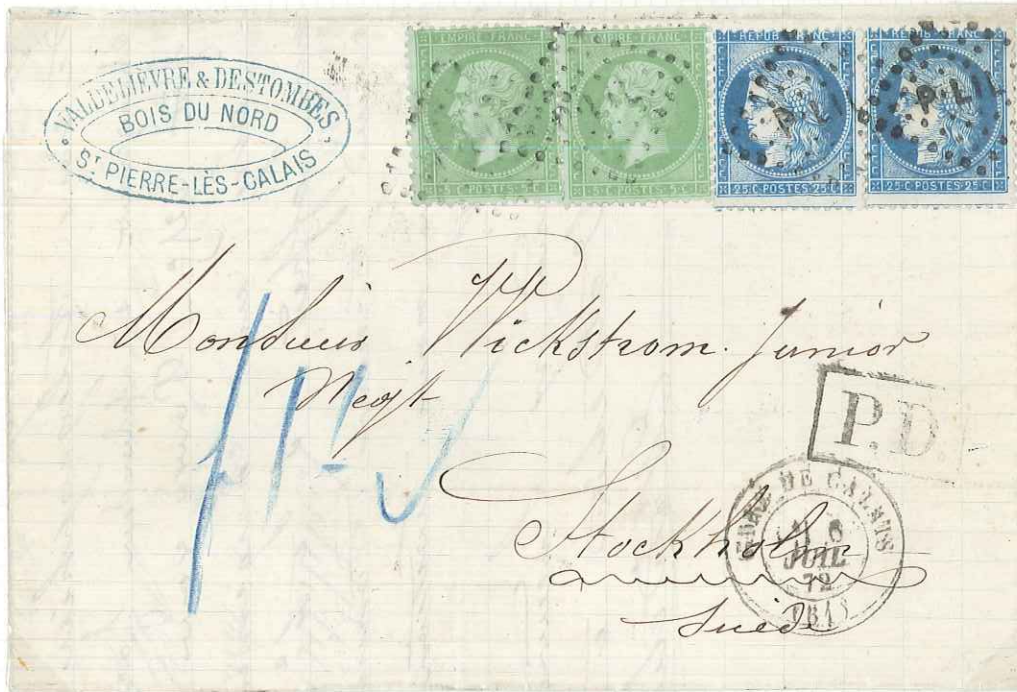 VALDELIEVRE & DESTOMBES
BOIS DU NORD
ST PIERRE-LÈS-CALAIS
EMPIRE FRANC
5 C POSTES 5 C
EMPIRE FRANC
5 C POSTES 5 C
REPUB FRANC
25 C POSTES 25 C
REPUB FRANC
25 C POSTES 25 C
Monsieur Wickstrom Junior
Negt
P.D.
Stockholm
Suède
GARE DE CALAIS
6
JUIL
72